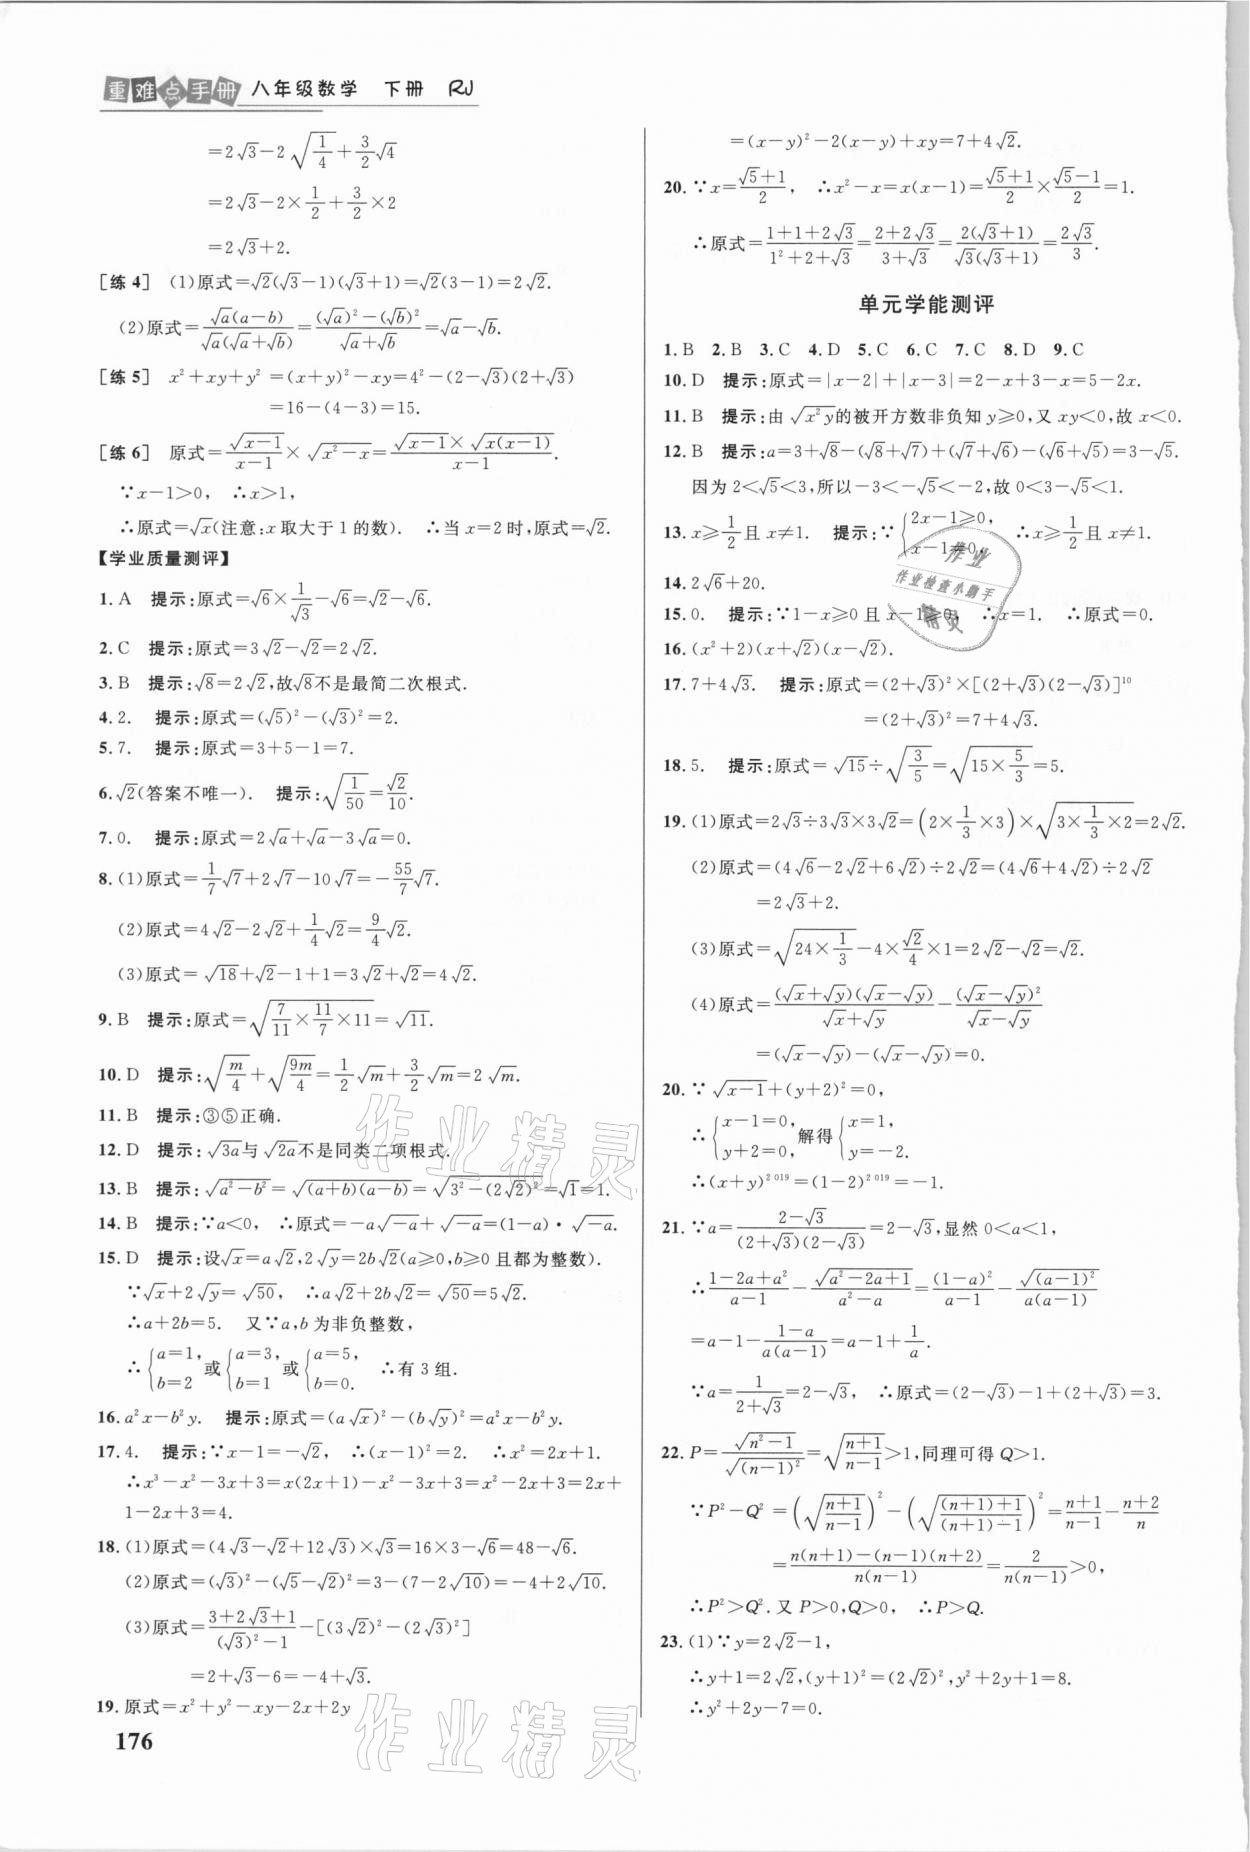 重难点手册 八年级数学 下册 RJ
=2√3-2√(1/4)+(3/2)√4
=2√3-2×1/2+3/2×2
=2√3+2.
[练4] (1)原式=√2(√3-1)(√3+1)=√2(3-1)=2√2.
(2)原式=√a(a-b)/[√a(√a+√b)]=[(√a)²-(√b)²]/(√a+√b)=√a-√b.
[练5] x²+xy+y²=(x+y)²-xy=4²-(2-√3)(2+√3)
=16-(4-3)=15.
[练6] 原式=√(x-1)/(x-1)×√(x²-x)=[√(x-1)×√(x(x-1))]/(x-1).
∵x-1>0, ∴x>1,
∴原式=√x(注意:x取大于1的数). ∴当x=2时,原式=√2.
【学业质量测评】
1. A 提示:原式=√6×1/√3-√6=√2-√6.
2. C 提示:原式=3√2-√2=2√2.
3. B 提示:√8=2√2,故√8不是最简二次根式.
4. 2. 提示:原式=(√5)²-(√3)²=2.
5. 7. 提示:原式=3+5-1=7.
6. √2(答案不唯一). 提示:√(1/50)=√2/10.
7. 0. 提示:原式=2√a+√a-3√a=0.
8. (1)原式=(1/7)√7+2√7-10√7=-(55/7)√7.
(2)原式=4√2-2√2+(1/4)√2=(9/4)√2.
(3)原式=√18+√2-1+1=3√2+√2=4√2.
9. B 提示:原式=√(7/11×11/7×11)=√11.
10. D 提示:√(m/4)+√(9m/4)=(1/2)√m+(3/2)√m=2√m.
11. B 提示:③⑤正确.
12. D 提示:√(3a)与√(2a)不是同类二项根式.
13. B 提示:√(a²-b²)=√((a+b)(a-b))=√(3²-(2√2)²)=√1=1.
14. B 提示:∵a<0, ∴原式=-a√(-a)+√(-a)=(1-a)·√(-a).
15. D 提示:设√x=a√2,2√y=2b√2(a≥0,b≥0且都为整数).
∵√x+2√y=√50, ∴a√2+2b√2=√50=5√2.
∴a+2b=5. 又∵a,b为非负整数,
∴{a=1, b=2 或{a=3, b=1 或{a=5, b=0. ∴有3组.
16. a²x-b²y. 提示:原式=(a√x)²-(b√y)²=a²x-b²y.
17. 4. 提示:∵x-1=-√2, ∴(x-1)²=2. ∴x²=2x+1.
∴x³-x²-3x+3=x(2x+1)-x²-3x+3=x²-2x+3=2x+
1-2x+3=4.
18. (1)原式=(4√3-√2+12√3)×√3=16×3-√6=48-√6.
(2)原式=(√3)²-(√5-√2)²=3-(7-2√10)=-4+2√10.
(3)原式=(3+2√3+1)/((√3)²-1)-[(3√2)²-(2√3)²]
=2+√3-6=-4+√3.
19. 原式=x²+y²-xy-2x+2y
176
=(x-y)²-2(x-y)+xy=7+4√2.
20. ∵x=(√5+1)/2, ∴x²-x=x(x-1)=(√5+1)/2×(√5-1)/2=1.
∴原式=(1+1+2√3)/(1²+2+√3)=(2+2√3)/(3+√3)=2(√3+1)/[√3(√3+1)]=2√3/3.
单元学能测评
1. B 2. B 3. C 4. D 5. C 6. C 7. C 8. D 9. C
10. D 提示:原式=|x-2|+|x-3|=2-x+3-x=5-2x.
11. B 提示:由√(x²y)的被开方数非负知y≥0,又xy<0,故x<0.
12. B 提示:a=3+√8-(√8+√7)+(√7+√6)-(√6+√5)=3-√5.
因为2<√5<3,所以-3<-√5<-2,故0<3-√5<1.
13. x≥1/2且x≠1. 提示:∵{2x-1≥0, x-1≠0, ∴x≥1/2且x≠1.
14. 2√6+20.
15. 0. 提示:∵1-x≥0且x-1≥0, ∴x=1. ∴原式=0.
16. (x²+2)(x+√2)(x-√2).
17. 7+4√3. 提示:原式=(2+√3)²×[(2+√3)(2-√3)]¹⁰
=(2+√3)²=7+4√3.
18. 5. 提示:原式=√15÷√(3/5)=√(15×5/3)=5.
19. (1)原式=2√3÷3√3×3√2=(2×1/3×3)×√(3×1/3×2)=2√2.
(2)原式=(4√6-2√2+6√2)÷2√2=(4√6+4√2)÷2√2
=2√3+2.
(3)原式=√(24×1/3)-4×√2/4×1=2√2-√2=√2.
(4)原式=(√x+√y)(√x-√y)/(√x+√y)-(√x-√y)²/(√x-√y)
=(√x-√y)-(√x-√y)=0.
20. ∵√(x-1)+(y+2)²=0,
∴{x-1=0, y+2=0, 解得{x=1, y=-2.
∴(x+y)²⁰¹⁹=(1-2)²⁰¹⁹=-1.
21. ∵a=(2-√3)/[(2+√3)(2-√3)]=2-√3,显然0<a<1,
∴(1-2a+a²)/(a-1)-√(a²-2a+1)/(a²-a)=(1-a)²/(a-1)-√((a-1)²)/[a(a-1)]
=a-1-(1-a)/[a(a-1)]=a-1+1/a.
∵a=1/(2+√3)=2-√3, ∴原式=(2-√3)-1+(2+√3)=3.
22. P=√(n²-1)/√((n-1)²)=√((n+1)/(n-1))>1,同理可得Q>1.
∵P²-Q²=(√((n+1)/(n-1)))²-(√(((n+1)+1)/((n+1)-1)))²=(n+1)/(n-1)-(n+2)/n
=[n(n+1)-(n-1)(n+2)]/[n(n-1)]=2/[n(n-1)]>0,
∴P²>Q².又P>0,Q>0, ∴P>Q.
23. (1)∵y=2√2-1,
∴y+1=2√2,(y+1)²=(2√2)²,y²+2y+1=8.
∴y²+2y-7=0.
作业
作业检查小助手
精灵
作业精灵
作业精灵